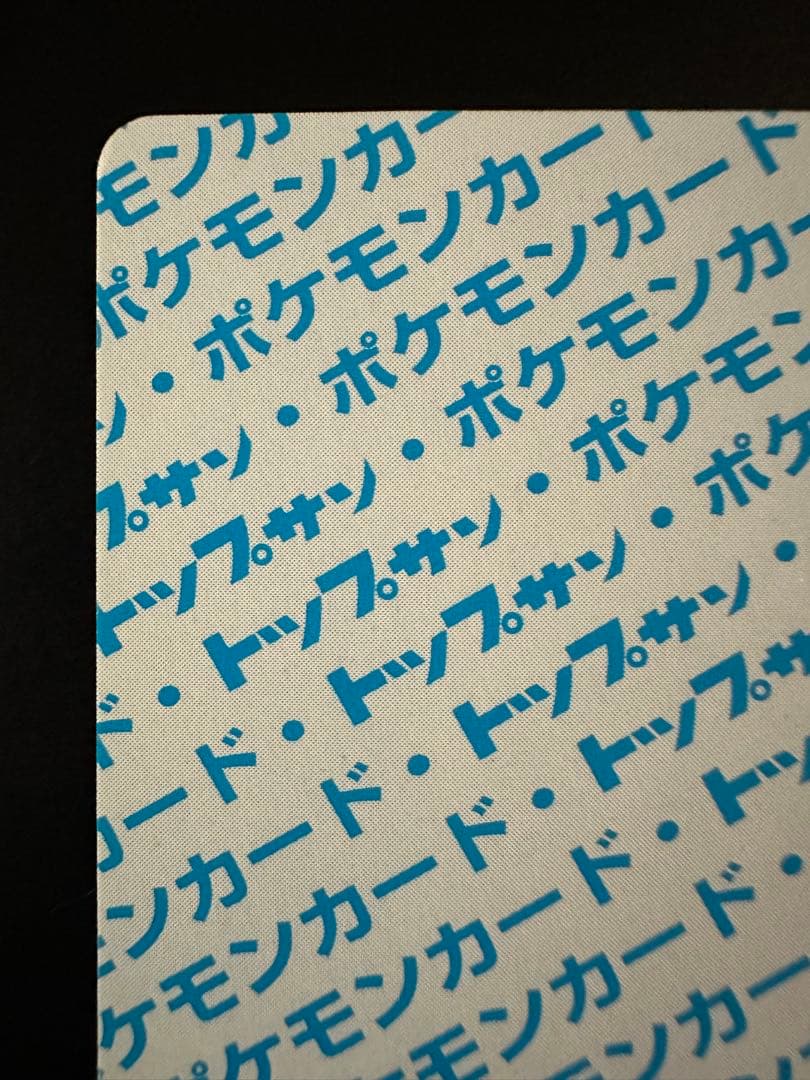 モンカ
ポケモンカー
ン・ポケモンカー
プサン・ポケモンカード
トップサン・ポケモンカー
ド・トップサン・ポケモン
カード・トップサン・ポケ
ンカード・トップサン・
ケモンカード・トップサ
ポケモンカード・トッ
モンカード・
ンカー